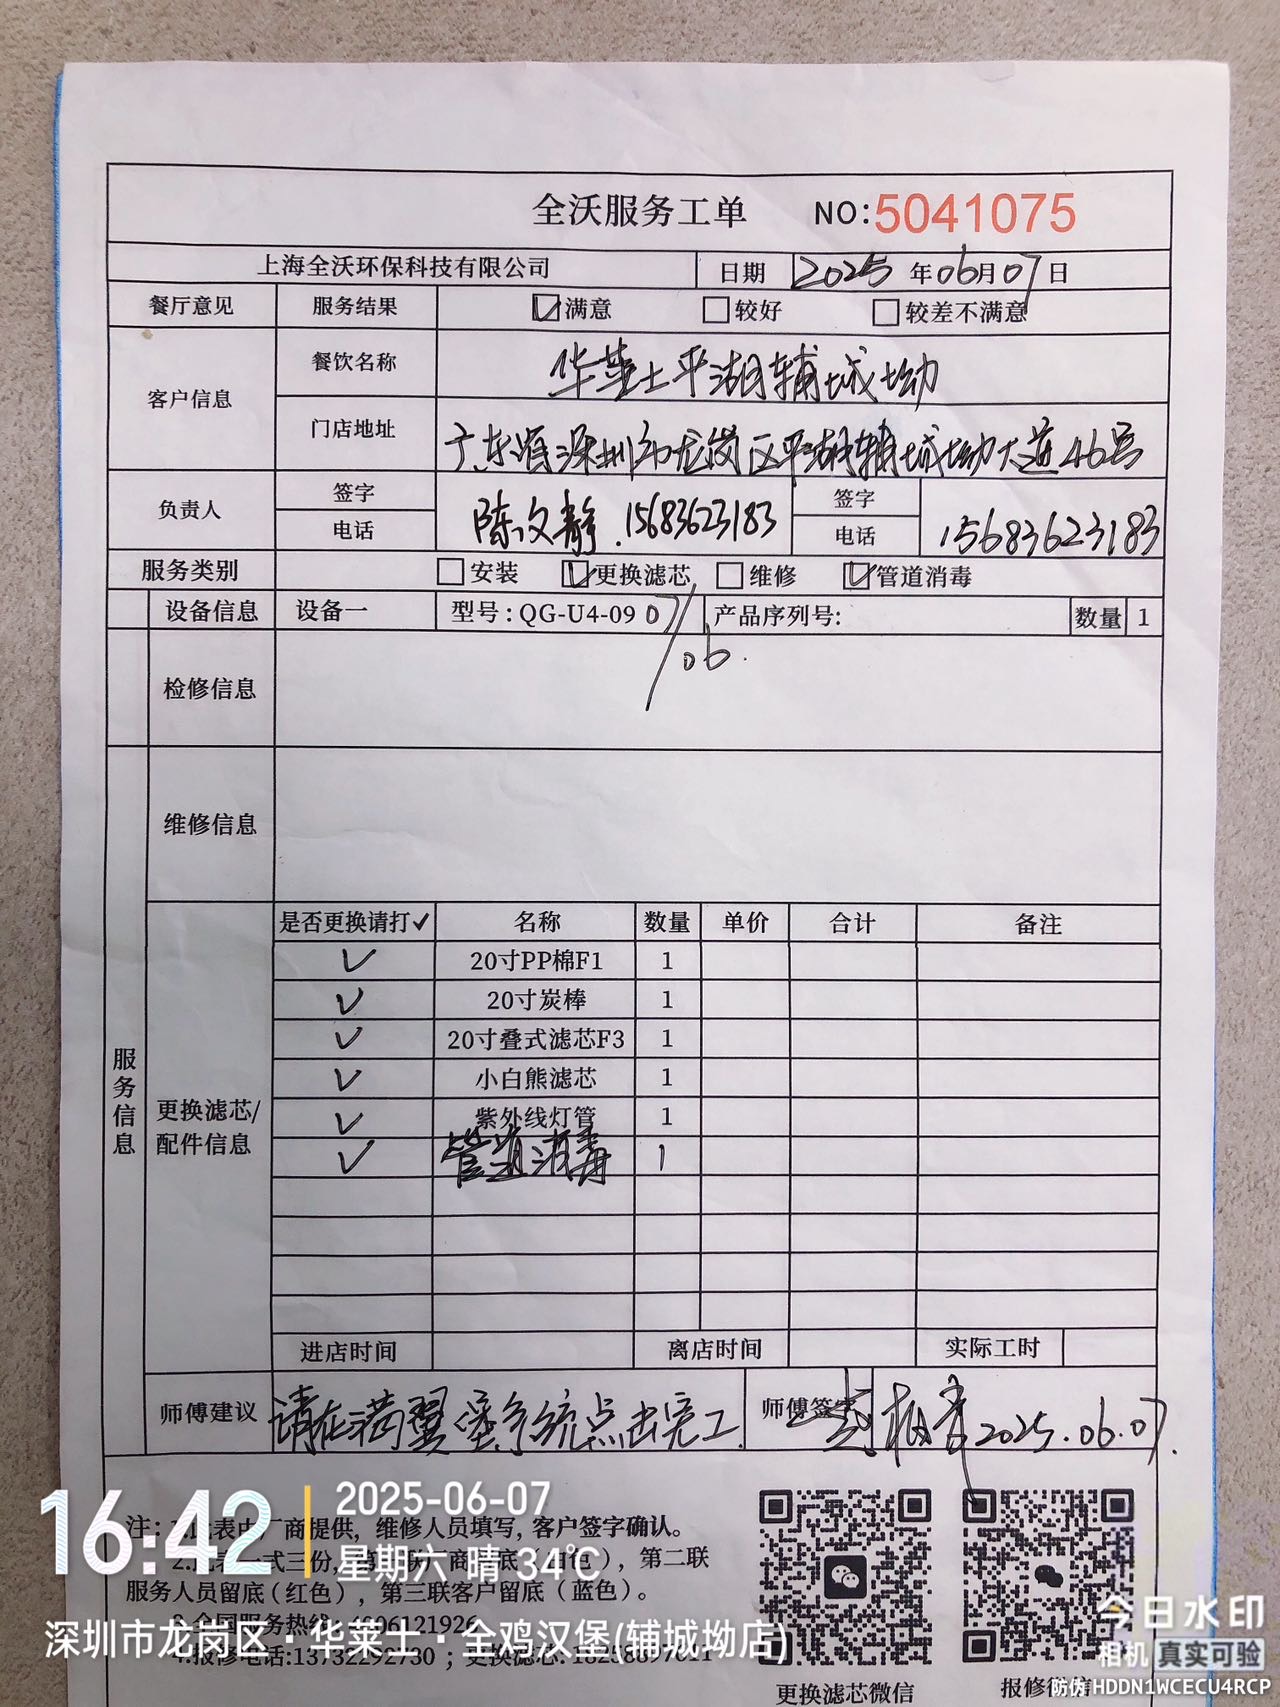 全沃服务工单 NO:5041075
上海全沃环保科技有限公司 日期 2025年06月07日
餐厅意见 服务结果 满意 较好 较差不满意
客户信息 餐饮名称 华莱士平湖辅城坳
门店地址 广东省深圳市龙岗区平湖辅城坳大道46号
负责人 签字 电话 陈文静.15683623183 签字 电话 15683623183
服务类别 安装 更换滤芯 维修 管道消毒
设备信息 设备一 型号:QG-U4-09 07/06. 产品序列号: 数量 1
检修信息
维修信息
服务信息
更换滤芯/配件信息
是否更换请打✓ 名称 数量 单价 合计 备注
✓ 20寸PP棉F1 1
✓ 20寸炭棒 1
✓ 20寸叠式滤芯F3 1
✓ 小白熊滤芯 1
✓ 紫外线灯管 1
✓ 管道消毒 1
进店时间 离店时间 实际工时
师傅建议 请在满翼 系统点击完工 师傅签字 2025.06.07.
注: 表由厂商提供, 维修人员填写, 客户签字确认。
一式三份, 商 底 (白色), 第二联
服务人员留底(红色), 第三联客户留底(蓝色)。
全国服务热线: 4006121926
报修电话:13732292730 ; 更换滤芯:
更换滤芯微信 报修微信
16:42
2025-06-07
星期六 晴 34℃
深圳市龙岗区·华莱士·全鸡汉堡(辅城坳店)
今日水印
相机 真实可验
防伪 HDDN1WCECU4RCP